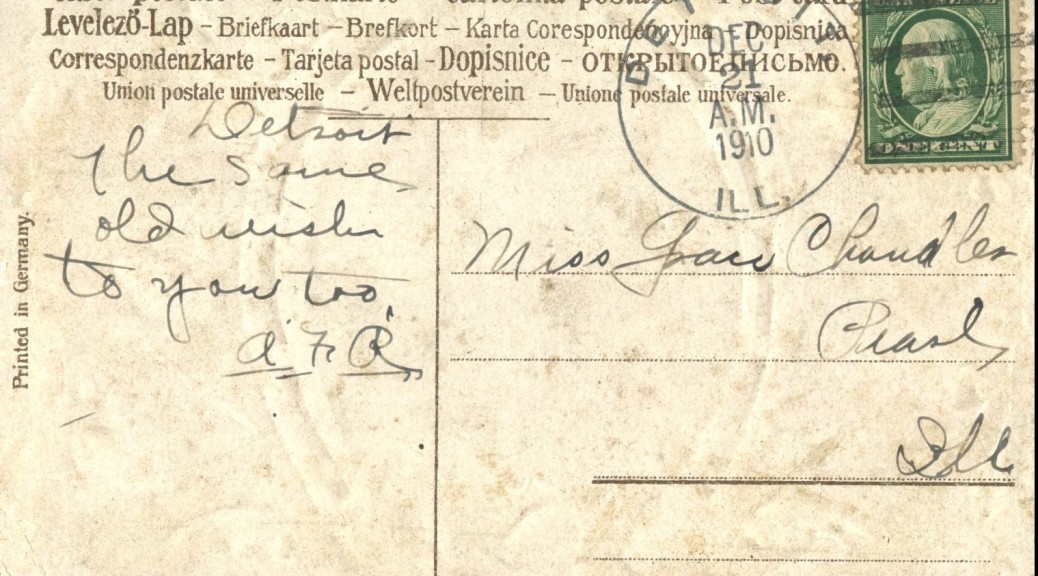 Levelező-Lap – Briefkaart – Brefkort – Karta Corespondencyjna – Dopisnica
Correspondenzkarte – Tarjeta postal – Dopisnice – ОТКРЫТОЕ ПИСЬМО.
Union postale universelle – Weltpostverein – Unione postale universale.
DETROIT
DEC
21
A.M.
1910
ILL.
ONE CENT
Detroit
The Same
old wish
to you too,
A. F. R.
Miss Grace Chandler
Pearl
Ill
Printed in Germany.